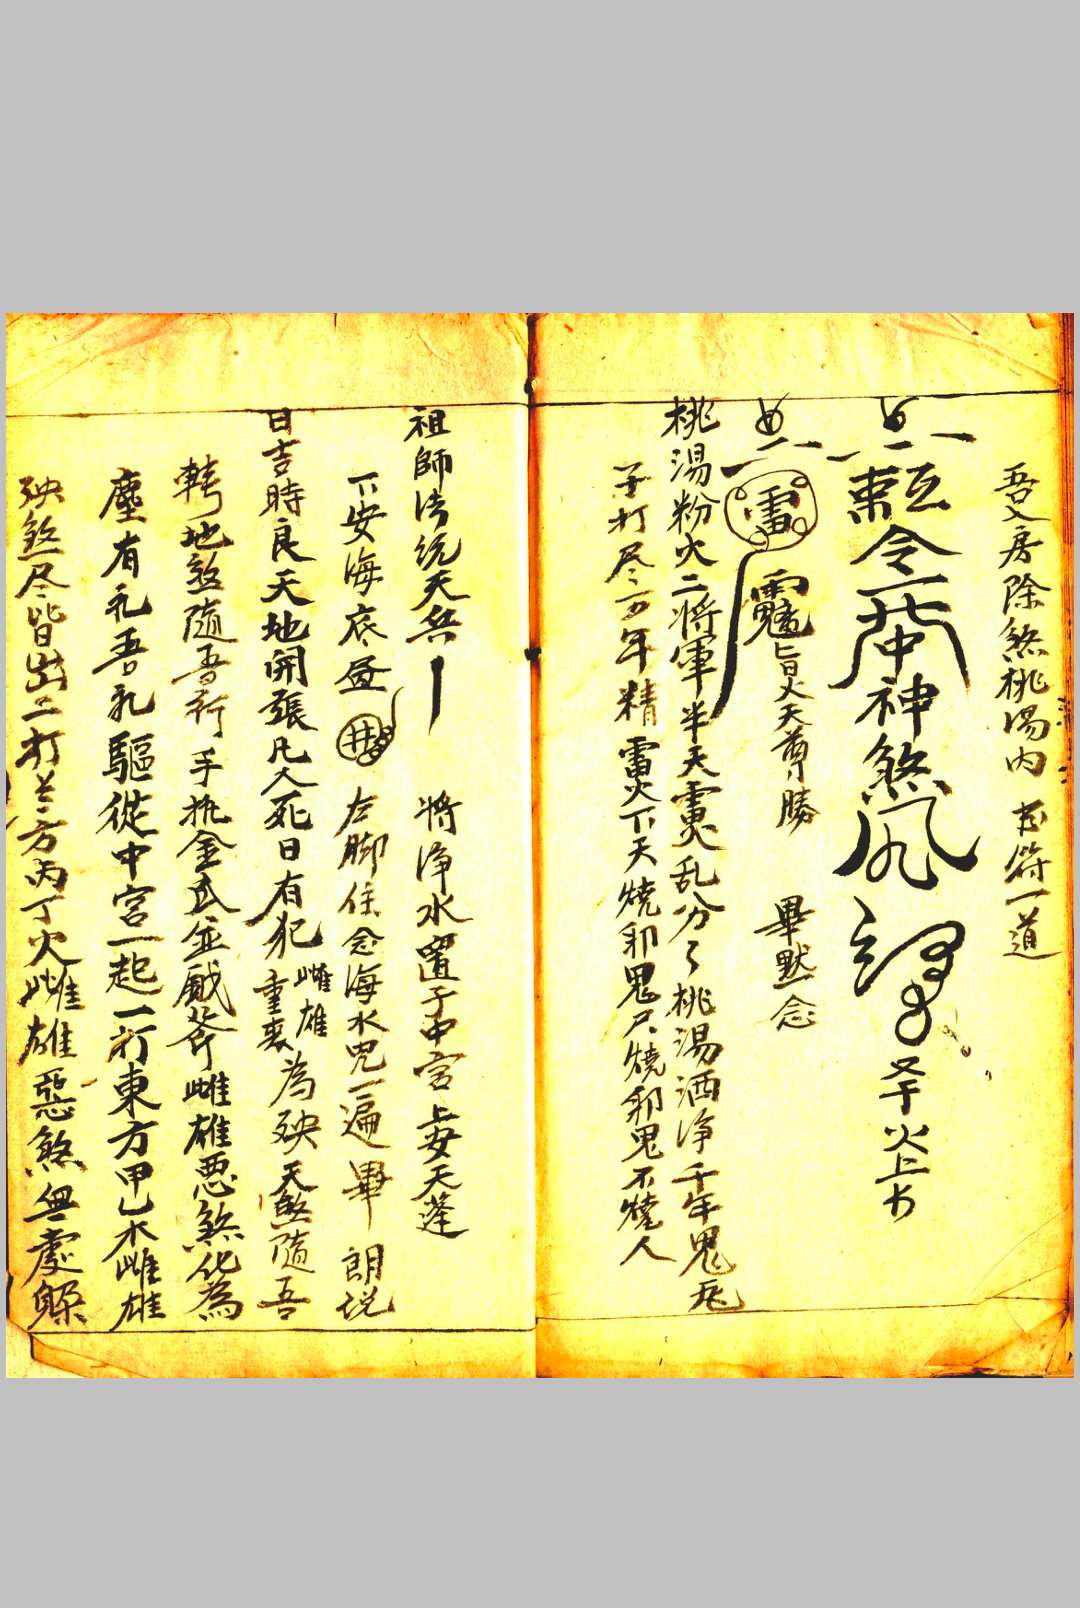 吾入房除煞桃湯内 書符一道
令 神煞 火上书
雷 旨火天尊勝 畢默念
桃湯粉火二将軍半天靁火乱分々桃湯洒净千年鬼死
子打尽万年精 雷火下天燒邪鬼只燒邪鬼不燒人
祖師法統天兵 将淨水置于中宮上安天蓬
下安海底 井 左脚住念海水児一遍畢 朗説
日吉時良天地開張凡人死日有犯雌雄重喪為殃天煞隨吾
轉地煞隨吾行手执金
雌雄惡煞化為
塵有礼吾礼驅從中宮一起一打東方甲乙木雌雄
殃煞尽皆出二打 方丙丁火雌雄惡煞無處躲